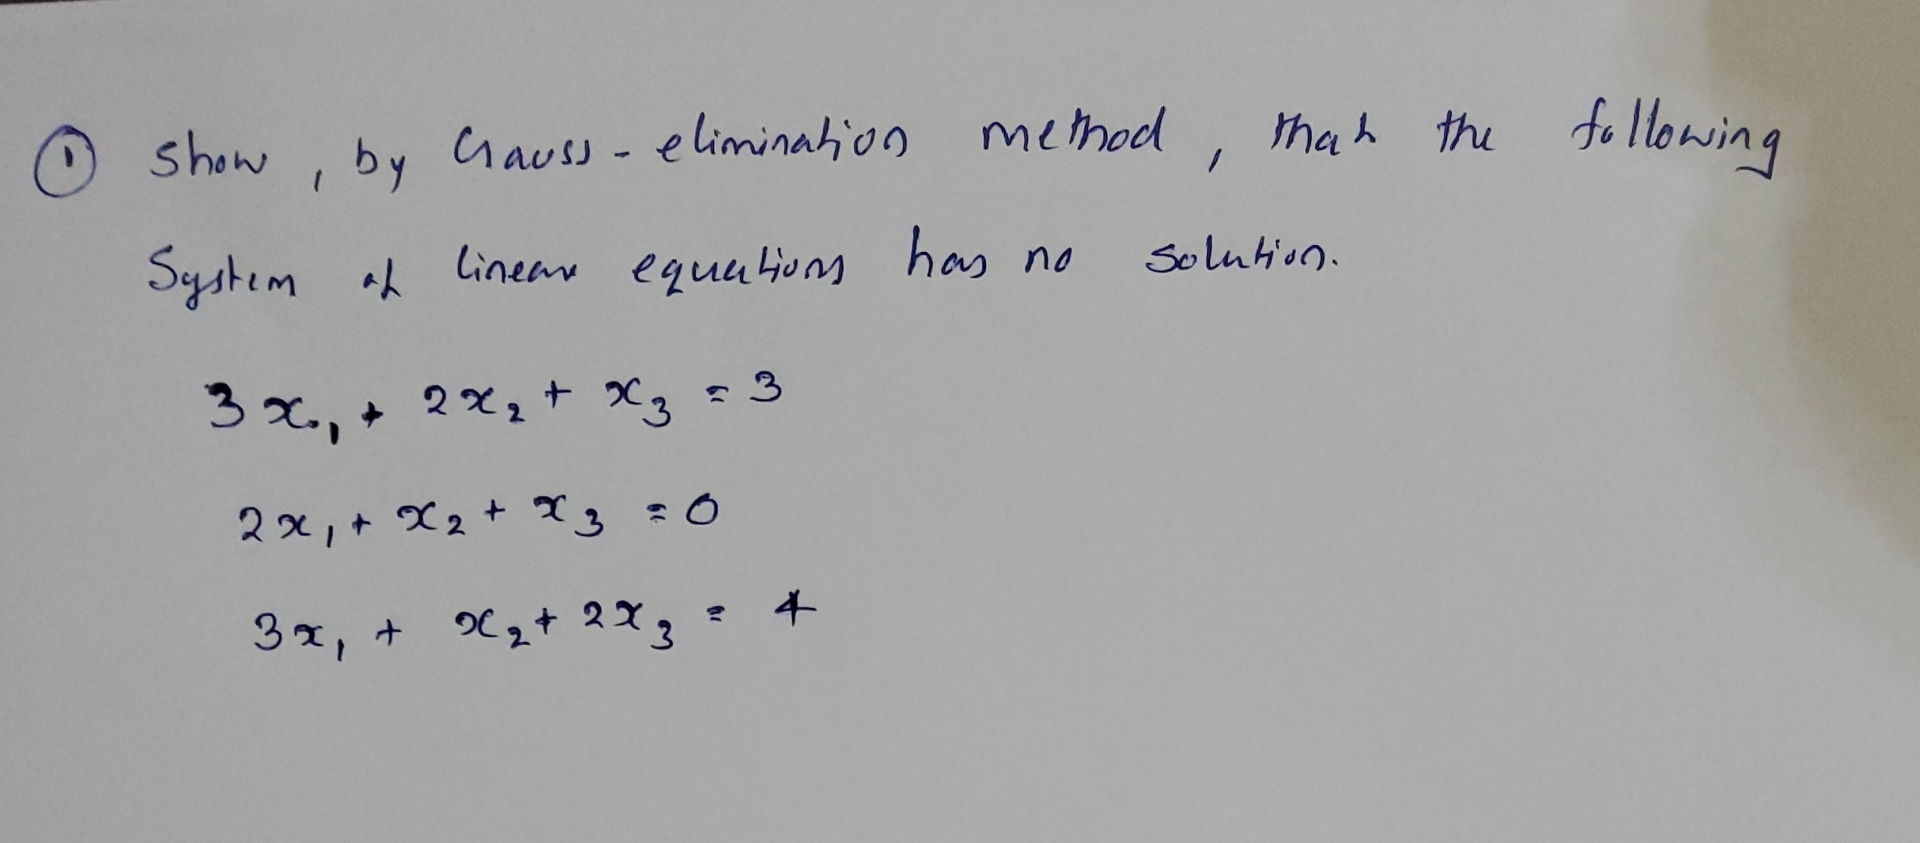 ① Show, by Gauss-elimination method, that the following
System of linear equations has no solution.
3x₁ + 2x₂ + x₃ = 3
2x₁ + x₂ + x₃ = 0
3x₁ + x₂ + 2x₃ = 4